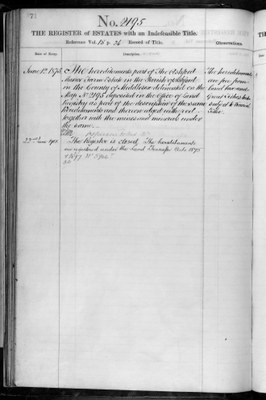 No. 2195
THE REGISTER of ESTATES with an Indefeasible Title.
Reference Vol. p. Record of Title.
Date of Entry.
Description.
Observations.
The hereditaments part of The
Manor Farm Estate in the Parish of
in the County of Middlesex delineated on the
Map No. 2195 deposited in the Office of Land
Registry as part of the description of the same
hereditaments and thereon edged with red
together with the mines and minerals under
the same.
The hereditaments
are free from
land tax and
Great Tithes but
subject to
Tithe.
The Register is closed. The hereditaments
are registered under the Land Transfer Acts 1875